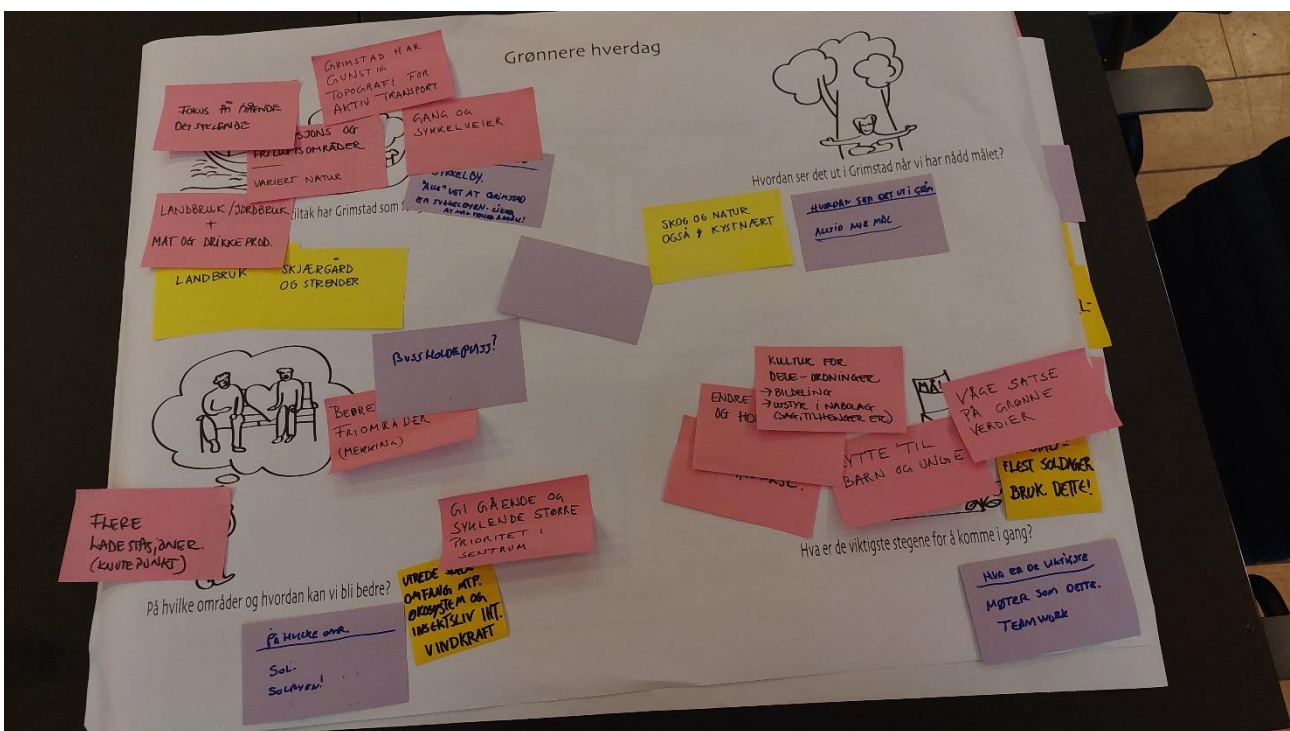 Grønnere hverdag
GRIMSTAD HAR
GUNSTIG
TOPOGRAFI FOR
AKTIV TRANSPORT
FOKUS PÅ GÅENDE
OG SYKLENDE
SJONS OG
FRILUFTSOMRÅDER
VARIERT NATUR
GANG OG
SYKKELVEIER
SYKKELBY.
"ALLE" VET AT GRIMSTAD
ER SYKKELBYEN.
LANDBRUK/JORDBRUK
+
MAT OG DRIKKEPROD.
iltak har Grimstad som
LANDBRUK
SKJÆRGÅRD
OG STRENDER
Hvordan ser det ut i Grimstad når vi har nådd målet?
SKOG OG NATUR
OGSÅ KYSTNÆRT
HVORDAN SER DET UT I GRIM
ALLTID NYE MÅL
L-
BUSSHOLDEPLASS?
BEDRE
FRIOMRÅDER
(MERKING)
FLERE
LADESTASJONER.
(KNUTEPUNKT)
GI GÅENDE OG
SYKLENDE STØRRE
PRIORITET I
SENTRUM
På hvilke områder og hvordan kan vi bli bedre?
UTREDE
OMFANG MTP.
ØKOSYSTEM OG
INSEKTSLIV INT.
VINDKRAFT
PÅ HVILKE OMR.
SOL.
SOLBYEN!
KULTUR FOR
DELE-ORDNINGER
→ BILDELING
→ UTSTYR I NABOLAG
(SAG, TILHENGER ETC)
ENDRE
OG HO
MÅL
VÅGE SATSE
PÅ GRØNNE
VERDIER
LYTTE TIL
BARN OG UNGE
FLEST SOLDAGER
BRUK DETTE!
Hva er de viktigste stegene for å komme i gang?
HVA ER DE VIKTIGSTE
MØTER SOM DETTE.
TEAMWORK